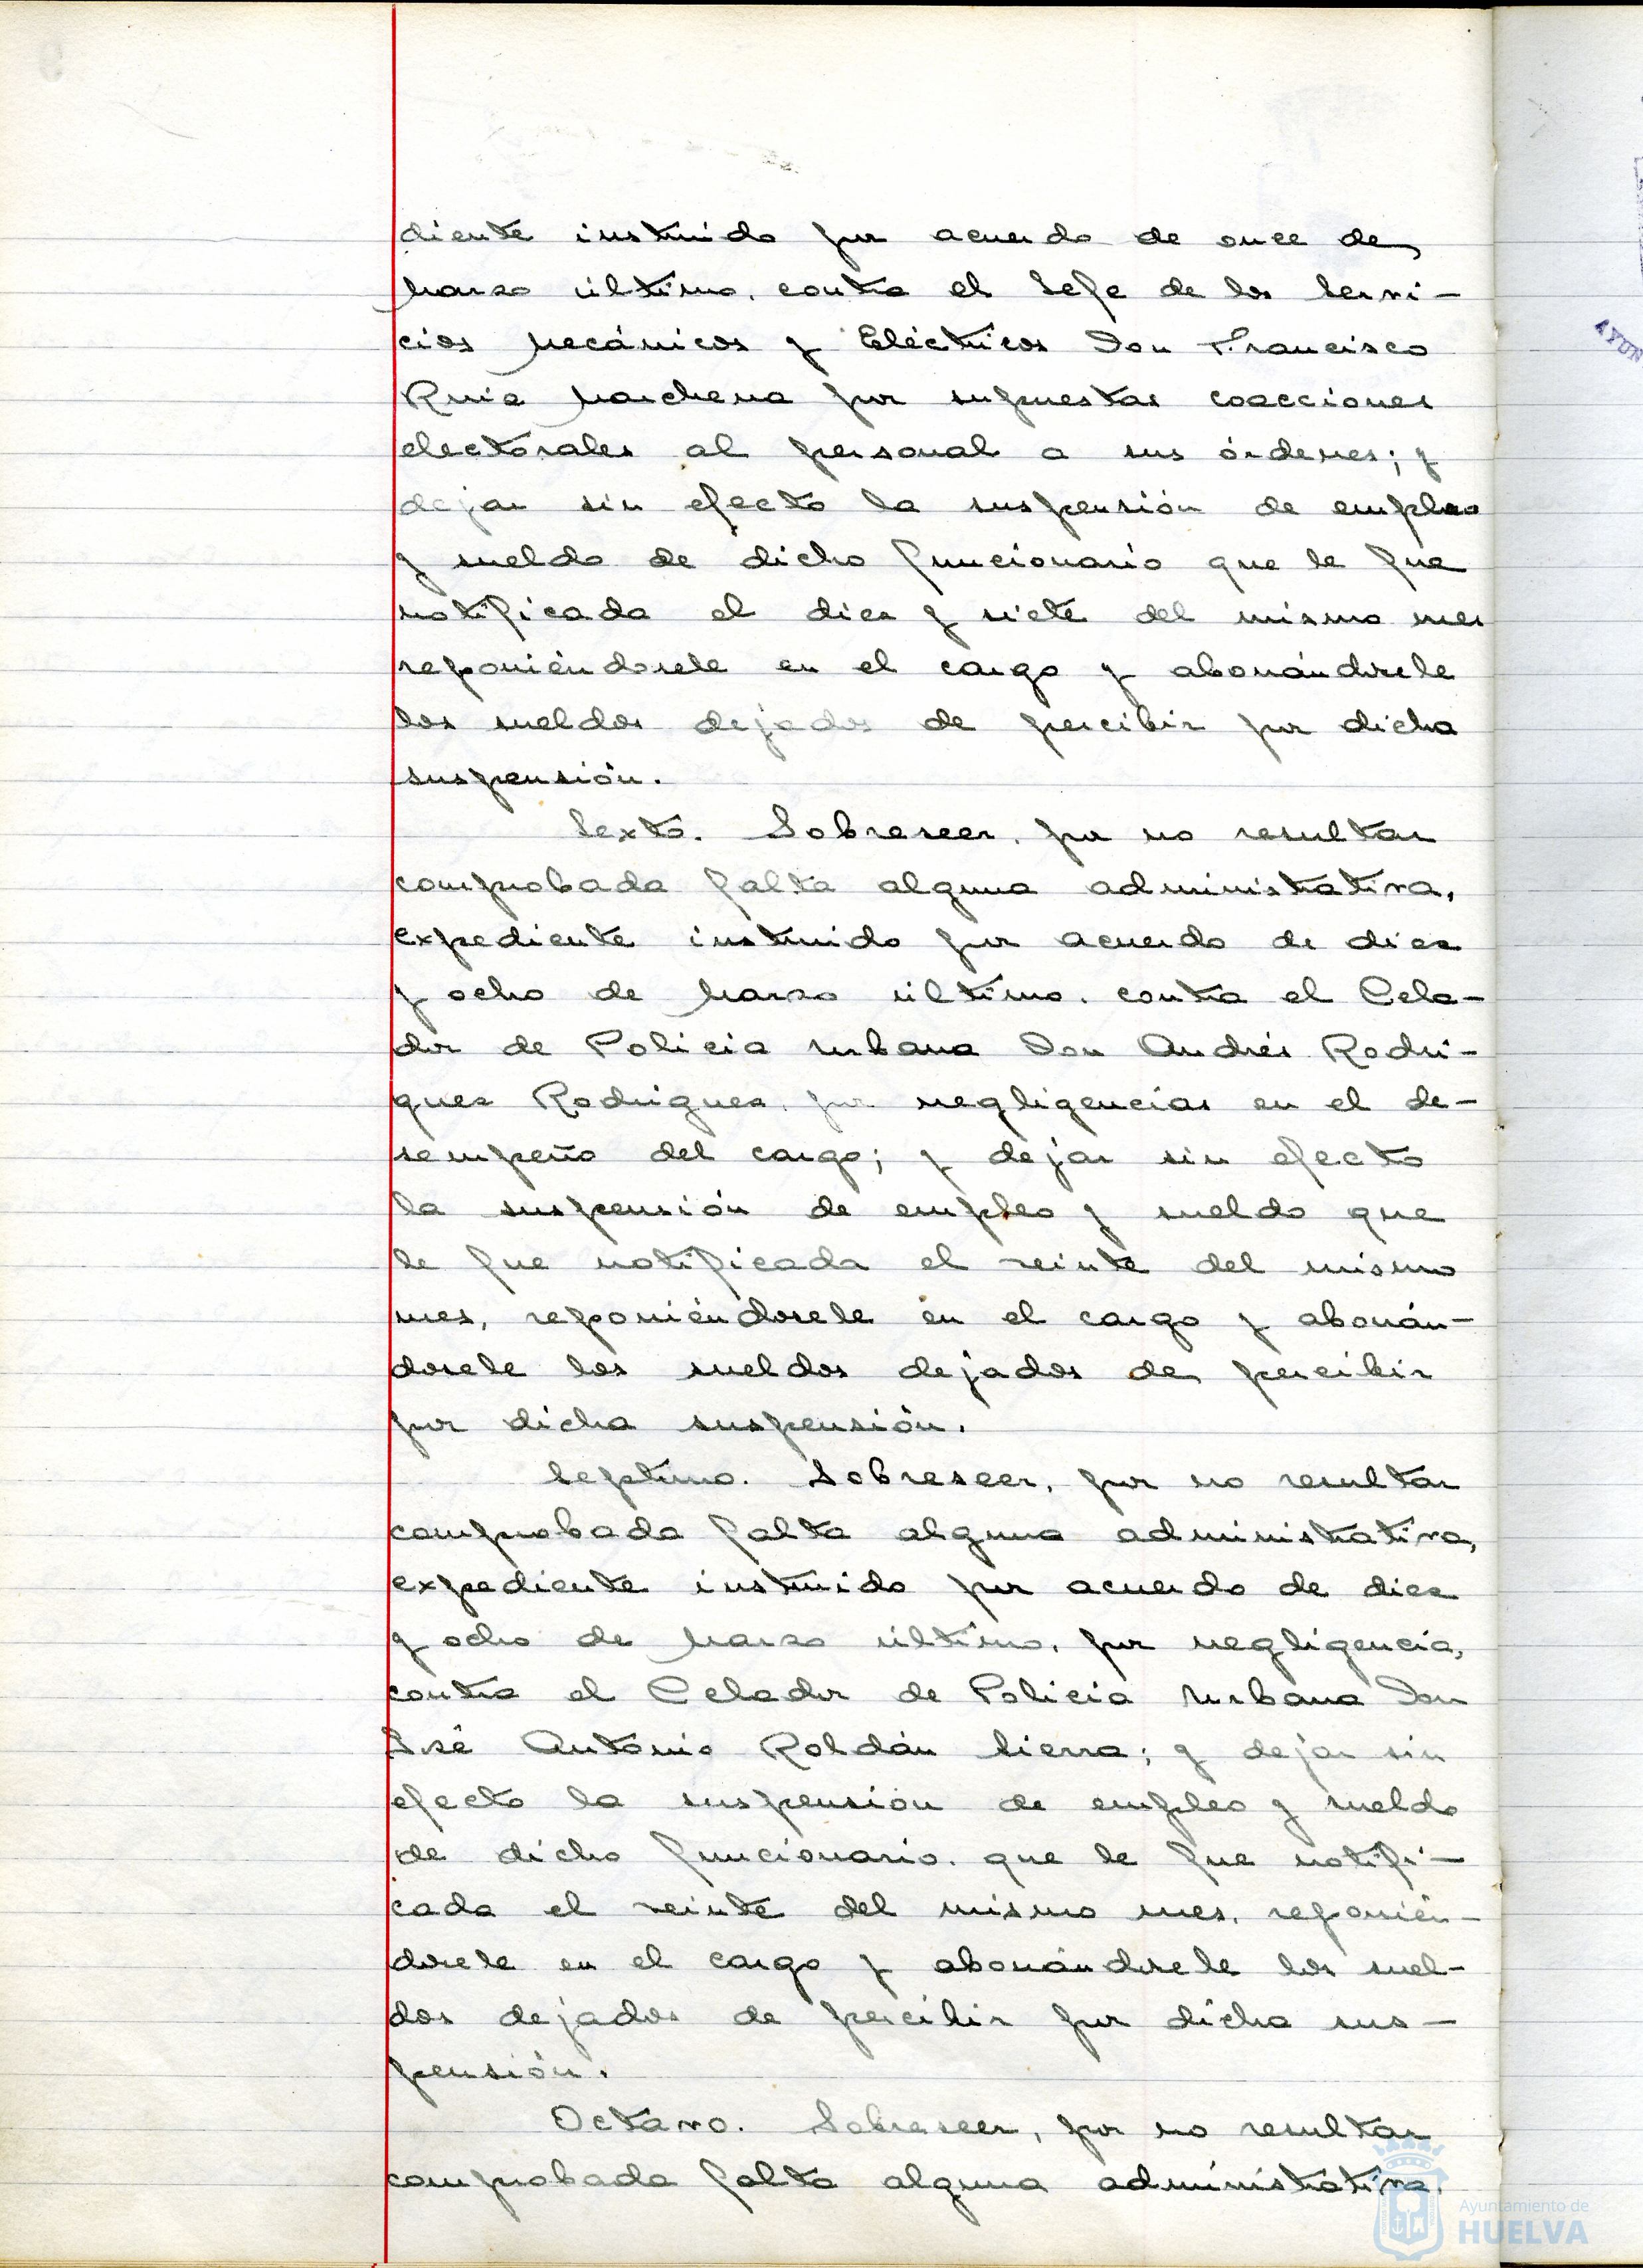 diente instruido por acuerdo de once de
Marzo último, contra el Jefe de los Servi-
cios Mecánicos y Eléctricos Don Francisco
Ruiz Marchena por supuestas coacciones
electorales al personal a sus órdenes; y
dejar sin efecto la suspensión de empleo
y sueldo de dicho funcionario que le fue
notificada el diez y siete del mismo mes
reponiéndosele en el cargo y abonándosele
los sueldos dejados de percibir por dicha
suspensión.
Sexto. Sobreseer, por no resultar
comprobada falta alguna administrativa,
expediente instruido por acuerdo de diez
y ocho de Marzo último, contra el Cela-
dor de Policia Urbana Don Andrés Rodri-
guez Rodriguez, por negligencias en el de-
sempeño del cargo; y dejar sin efecto
la suspensión de empleo y sueldo que
le fue notificada el veinte del mismo
mes, reponiéndosele en el cargo y abonán-
dosele los sueldos dejados de percibir
por dicha suspensión.
Septimo. Sobreseer, por no resultar
comprobada falta alguna administrativa,
expediente instruido por acuerdo de diez
y ocho de Marzo último, por negligencia,
contra el Celador de Policia Urbana Don
José Antonio Roldán Sierra; y dejar sin
efecto la suspensión de empleo y sueldo
de dicho funcionario, que le fue notifi-
cada el veinte del mismo mes, reponién-
dosele en el cargo y abonándosele los suel-
dos dejados de percibir por dicha sus-
pensión.
Octavo. Sobreseer, por no resultar
comprobada falta alguna administrativa,
Ayuntamiento de
HUELVA